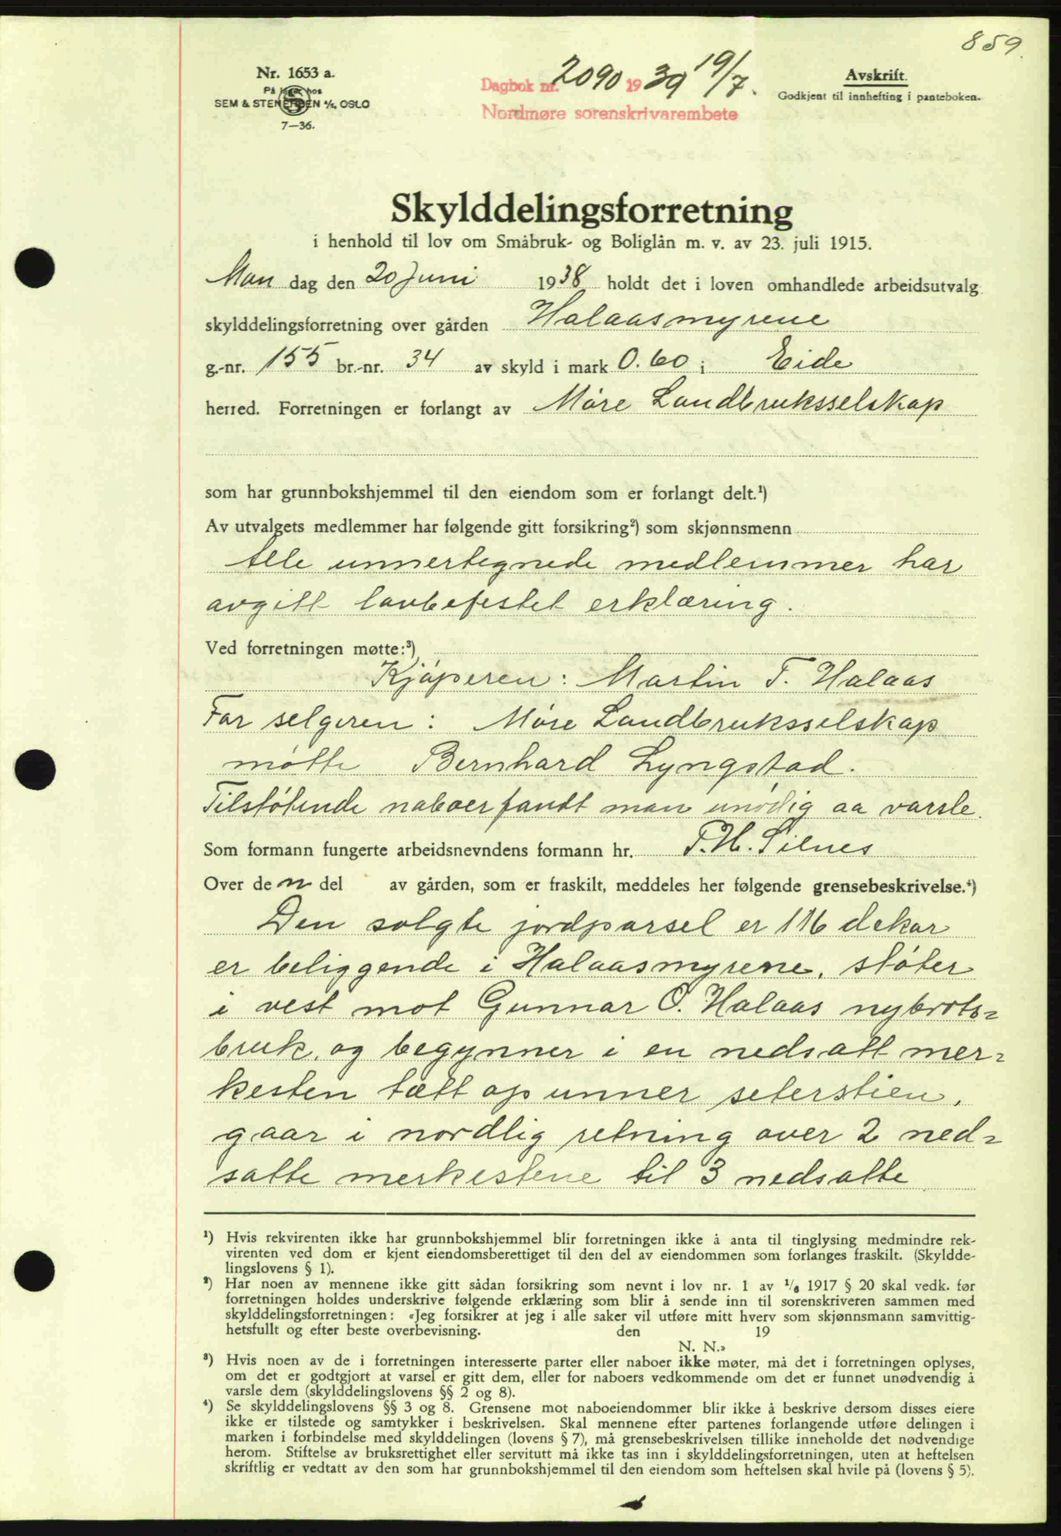 859
Nr. 1653 a.
På lager hos
SEM & STENERSEN A/S, OSLO
7-36.
Dagbok nr. 2090 1939 19/7.
Nordmøre sorenskrivarembete
Avskrift.
Godkjent til innhefting i panteboken.
Skylddelingsforretning
i henhold til lov om Småbruk- og Boliglån m. v. av 23. juli 1915.
Man dag den 20 Juni 1938 holdt det i loven omhandlede arbeidsutvalg
skylddelingsforretning over gården Halaasmyrene
g.-nr. 155 br.-nr. 34 av skyld i mark 0.60 i Eide
herred. Forretningen er forlangt av Møre Landbruksselskap
som har grunnbokshjemmel til den eiendom som er forlangt delt.¹)
Av utvalgets medlemmer har følgende gitt forsikring²) som skjønnsmenn
Alle unnertegnede medlemmer har
avgitt lovbefestet erklæring.
Ved forretningen møtte:³)
Kjøperen: Martin T. Halaas
For selgeren: Møre Landbruksselskap
møtte Bernhard Lyngstad.
Tilstøtende naboer fandt man unødig aa varsle.
Som formann fungerte arbeidsnevndens formann hr. P.H. Silnes
Over den del av gården, som er fraskilt, meddeles her følgende grensebeskrivelse.⁴)
Den solgte jordparsel er 116 dekar
er beliggende i Halaasmyrene, støter
i vest mot Gunnar O. Halaas nybrots=
bruk, og begynner i en nedsatt mer=
kesten tætt op unner seterstien,
gaar i nordlig retning over 2 ned=
satte merkestene til 3 nedsatte
¹) Hvis rekvirenten ikke har grunnbokshjemmel blir forretningen ikke å anta til tinglysing medmindre rek-
virenten ved dom er kjent eiendomsberettiget til den del av eiendommen som forlanges fraskilt. (Skyldde-
lingslovens § 1).
²) Har noen av mennene ikke gitt sådan forsikring som nevnt i lov nr. 1 av 1/6 1917 § 20 skal vedk. før
forretningen holdes underskrive følgende erklæring som blir å sende inn til sorenskriveren sammen med
skylddelingsforretningen: «Jeg forsikrer at jeg i alle saker vil utføre mitt hverv som skjønnsmann samvittig-
hetsfullt og efter beste overbevisning. den 19
N. N.»
³) Hvis noen av de i forretningen interesserte parter eller naboer ikke møter, må det i forretningen oplyses,
om det er godtgjort at varsel er gitt dem, eller for naboers vedkommende om det er funnet unødvendig å
varsle dem (skylddelingslovens §§ 2 og 8).
⁴) Se skylddelingslovens §§ 3 og 8. Grensene mot naboeiendommer blir ikke å beskrive dersom disses eiere
ikke er tilstede og samtykker i beskrivelsen. Skal mennene efter partenes forlangende utføre delingen i
marken i forbindelse med skylddelingen (lovens § 7), må grensebeskrivelsen tillike inneholde det nødvendige
herom. Stiftelse av bruksrettighet eller servitutt må ikke tas inn i skylddelingsforretningen, uten at heftelsen
skriftlig er vedtatt av den som har grunnbokshjemmel til den eiendom som heftelsen skal hvile på (lovens § 5).